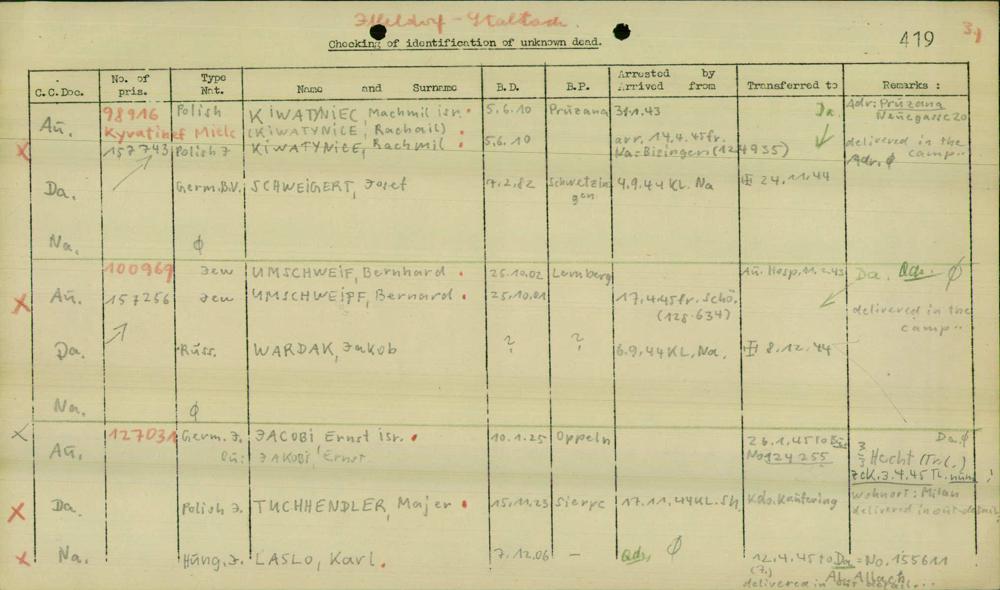 Iffeldorf - Staltach.
Checking of identification of unknown dead.
419
C.C.Doc. No. of pris. Type Nat. Name and Surname B.D. B.P. Arrested by Arrived from Transferred to Remarks :
Au. 98916 Polish KIWATYNIEC Machmil isr. 5.6.10 Pružana 31.1.43 Da. Adr: Pružana
Neuegasse 20
Kyvatinef Mielc (KIWATYNICE, Rachail)
X 157743 Polish J KIWATYNICE, Rachmil 5.6.10 arr. 14.4.45 fr. delivered in the
Na=Bisingen (124935) camp..
Adr. ϕ
Da. Germ.B.V. SCHWEIGERT, Josef 7.2.82 Schwetzingen 4.9.44 KL. Na III 24.11.44
Na. ϕ
100969 Jew UMSCHWEIF, Bernhard 25.10.02 Lemberg Au. Hosp. 11.2.43 Da. Adr. ϕ
X Au. 157256 Jew UMSCHWEIPF, Bernard 25.10.01 17.4.45 fr. Schö. delivered in the
(128.634) camp..
Da. Russ. WARDAK, Jakob ? ? 6.9.44 KL. Na. III 8.12.44
Na. ϕ
X Au. 127031 Germ. J. JACOBI Ernst isr. 10.1.25 Oppeln 26.1.45 to Da. ϕ
JAKOBI Ernst No 124255 Hecht (Trl.)
3.4.45
X Da. Polish J. TUCHHENDLER, Majer 15.11.23 Sierpc 17.11.44 KL. Sh. Kdo. Kaufering Wohnort: Milan
delivered in out detail
X Na. Hung. J. LASLO, Karl. 7.12.06 - Adr. ϕ 12.4.45 to Da = No. 155611
(7.) Al. Allach
delivered in out detail...